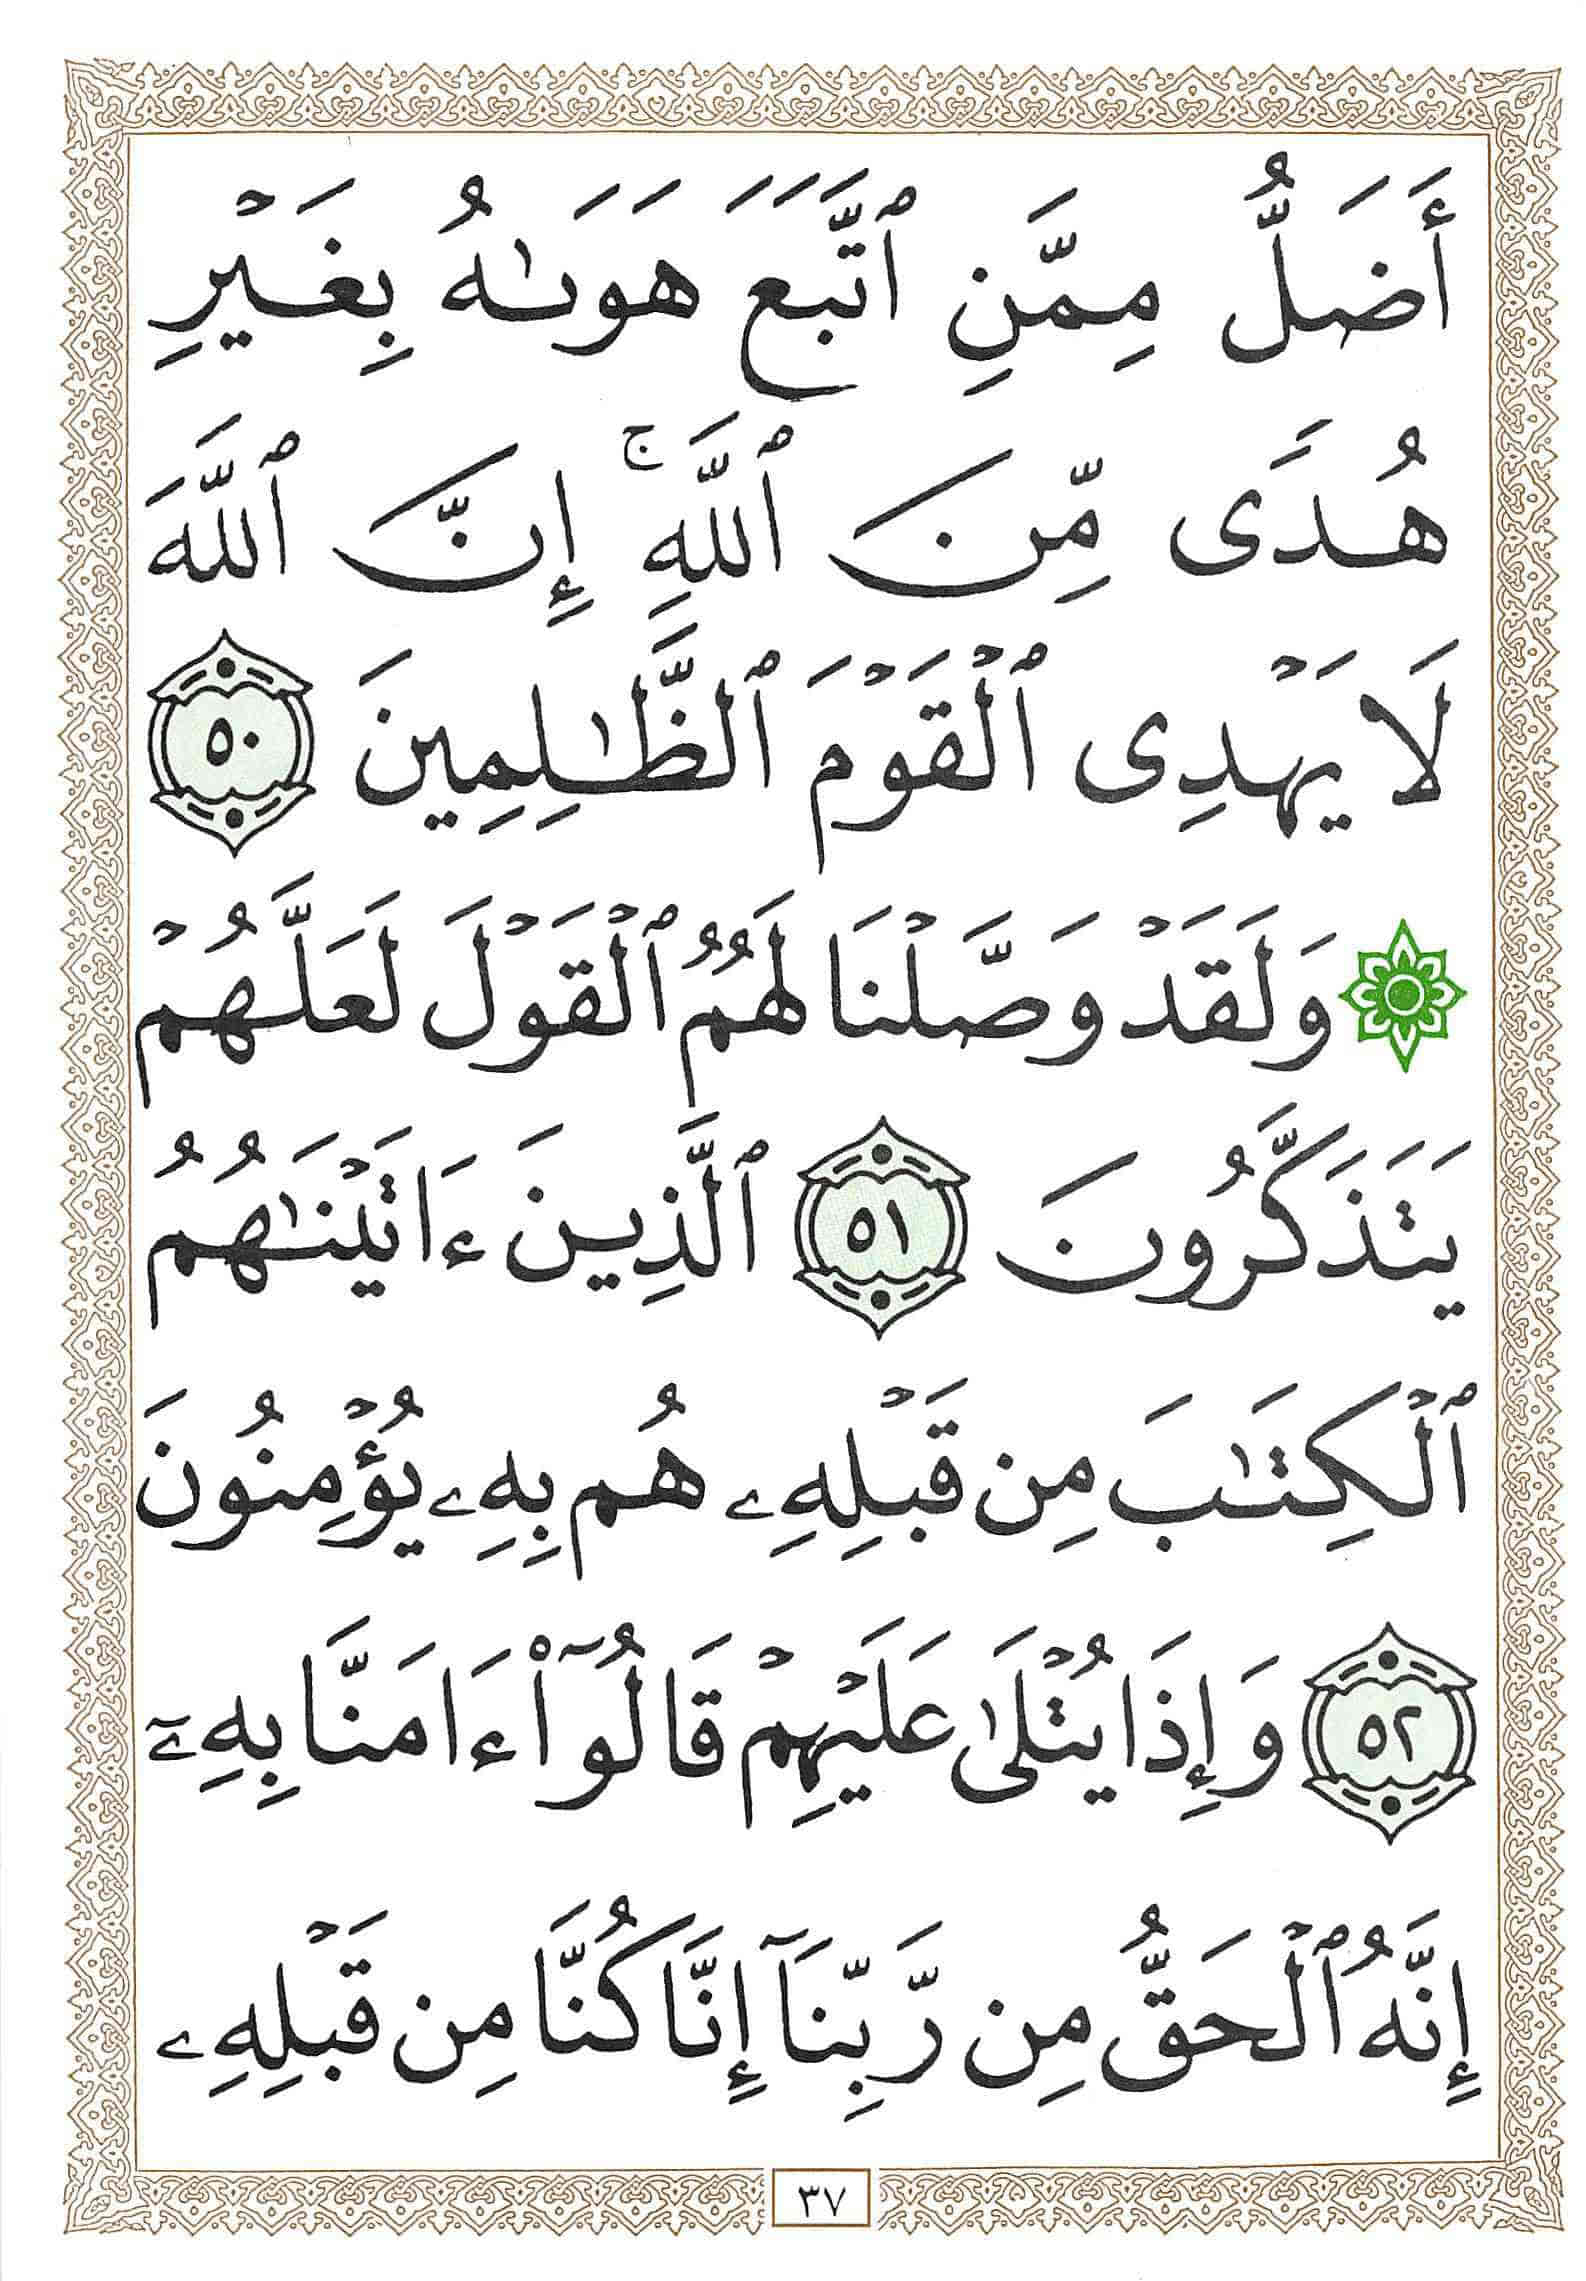 أَضَلُّ مِمَّنِ ٱتَّبَعَ هَوَىٰهُ بِغَيۡرِ
هُدٗى مِّنَ ٱللَّهِۚ إِنَّ ٱللَّهَ
لَا يَهۡدِي ٱلۡقَوۡمَ ٱلظَّٰلِمِينَ ٥٠
۞وَلَقَدۡ وَصَّلۡنَا لَهُمُ ٱلۡقَوۡلَ لَعَلَّهُمۡ
يَتَذَكَّرُونَ ٥١ ٱلَّذِينَ ءَاتَيۡنَٰهُمُ
ٱلۡكِتَٰبَ مِن قَبۡلِهِۦ هُم بِهِۦ يُؤۡمِنُونَ
٥٢ وَإِذَا يُتۡلَىٰ عَلَيۡهِمۡ قَالُوٓاْ ءَامَنَّا بِهِۦٓ
إِنَّهُ ٱلۡحَقُّ مِن رَّبِّنَآ إِنَّا كُنَّا مِن قَبۡلِهِۦ
٣٧